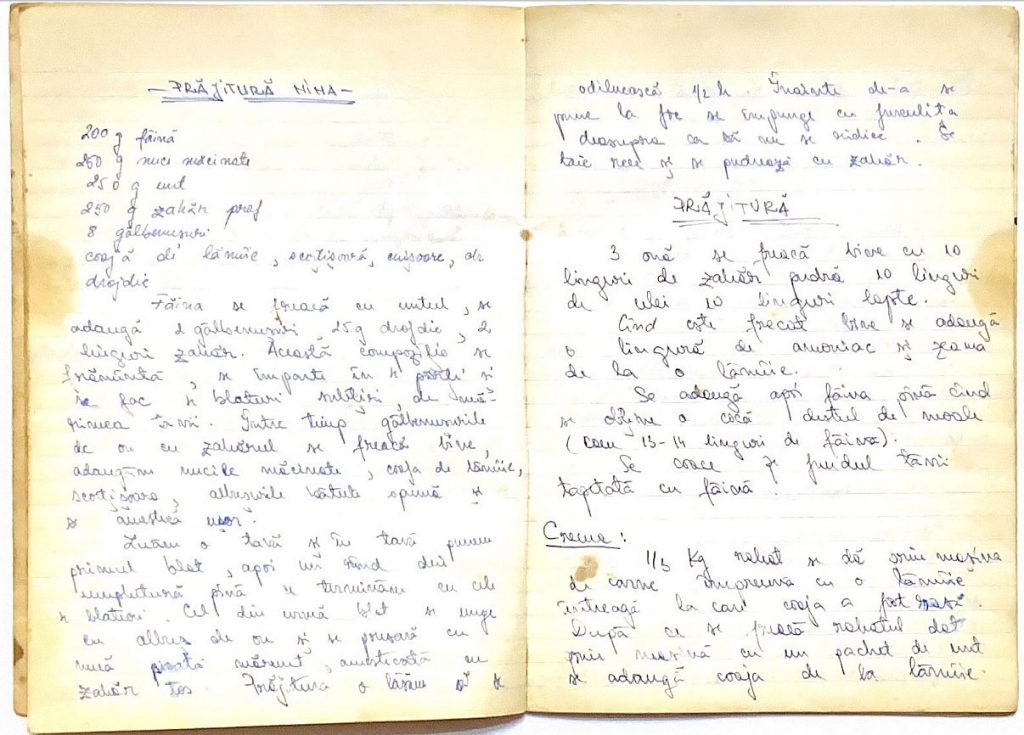 - PRĂJITURĂ NINA -
200 g făină
250 g nuci măcinate
250 g unt
250 g zahăr praf
8 gălbenușuri
coajă de lămîie, scorțișoară, cuișoare,
drojdie
Făina se freacă cu untul, se
adaugă 2 gălbenușuri 25 g drojdie, 2
linguri zahăr. Această compoziție se
frămîntă, se împarte în 4 părți și
se fac 4 blaturi subțiri, de mă-
rimea tăvii. Între timp gălbenușurile
de ou cu zahărul se freacă bine,
adaugăm nucile măcinate, coaja de lămîie,
scorțișoara, albușurile bătute spumă și
se amestecă ușor.
Luăm o tavă și în tavă punem
primul blat, apoi un rînd din
umplutură pînă terminăm cu cele
4 blaturi. Cel din urmă blat se unge
cu albuș de ou și se presară cu
nucă pisată mărunt, amestecată cu
zahăr tos. Prăjitura o lăsăm să se
odihnească 1/2 h. Înainte de-a se
pune la foc se împunge cu furculița
deasupra ca să nu se ridice. Se
taie rece și se pudrează cu zahăr.
PRĂJITURĂ
3 ouă se freacă bine cu 10
linguri de zahăr pudră 10 linguri
de ulei 10 linguri lapte.
Cînd este frecat bine se adaugă
o lingură de amoniac și zeama
de la o lămîie.
Se adaugă apoi făina pînă cînd
se obține o cocă destul de moale
(cam 13-14 linguri de făină).
Se coace pe fundul tăvii
tapetată cu făină.
Crema:
1/2 Kg rahat se dă prin mașina
de carne împreună cu o lămîie
întreagă la care coaja a fost rasă.
După ce se freacă rahatul dat
prin mașină cu un pachet de unt
se adaugă coaja de la lămîie.